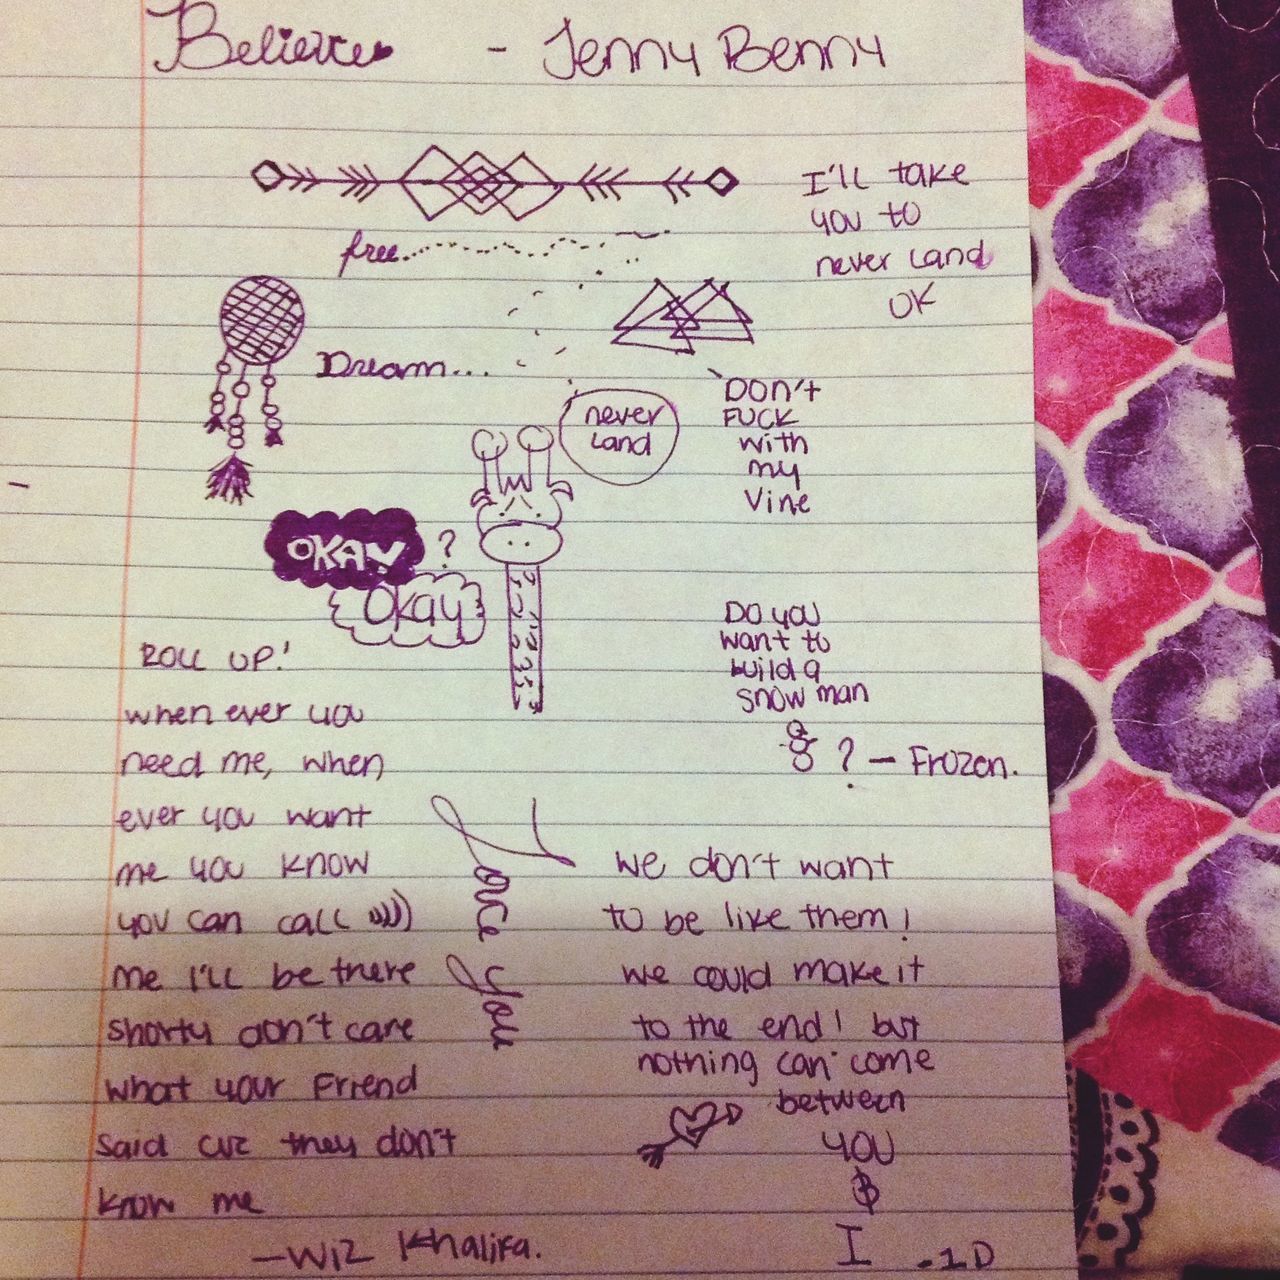 Believe - Jenny Benny
I'll take
you to
never land
OK
free
Dream...
never
land
Don't
FUCK
with
my
Vine
OKAY ?
Okay
Do you
want to
build a
snow man
? - Frozen.
Roll up!
when ever you
need me, when
ever you want
me you know
you can call
me I'll be there
shorty don't care
what your Friend
said cuz they don't
know me
-Wiz Khalifa.
Love you
we don't want
to be like them!
we could make it
to the end! but
nothing can come
between
you
&
I -1D